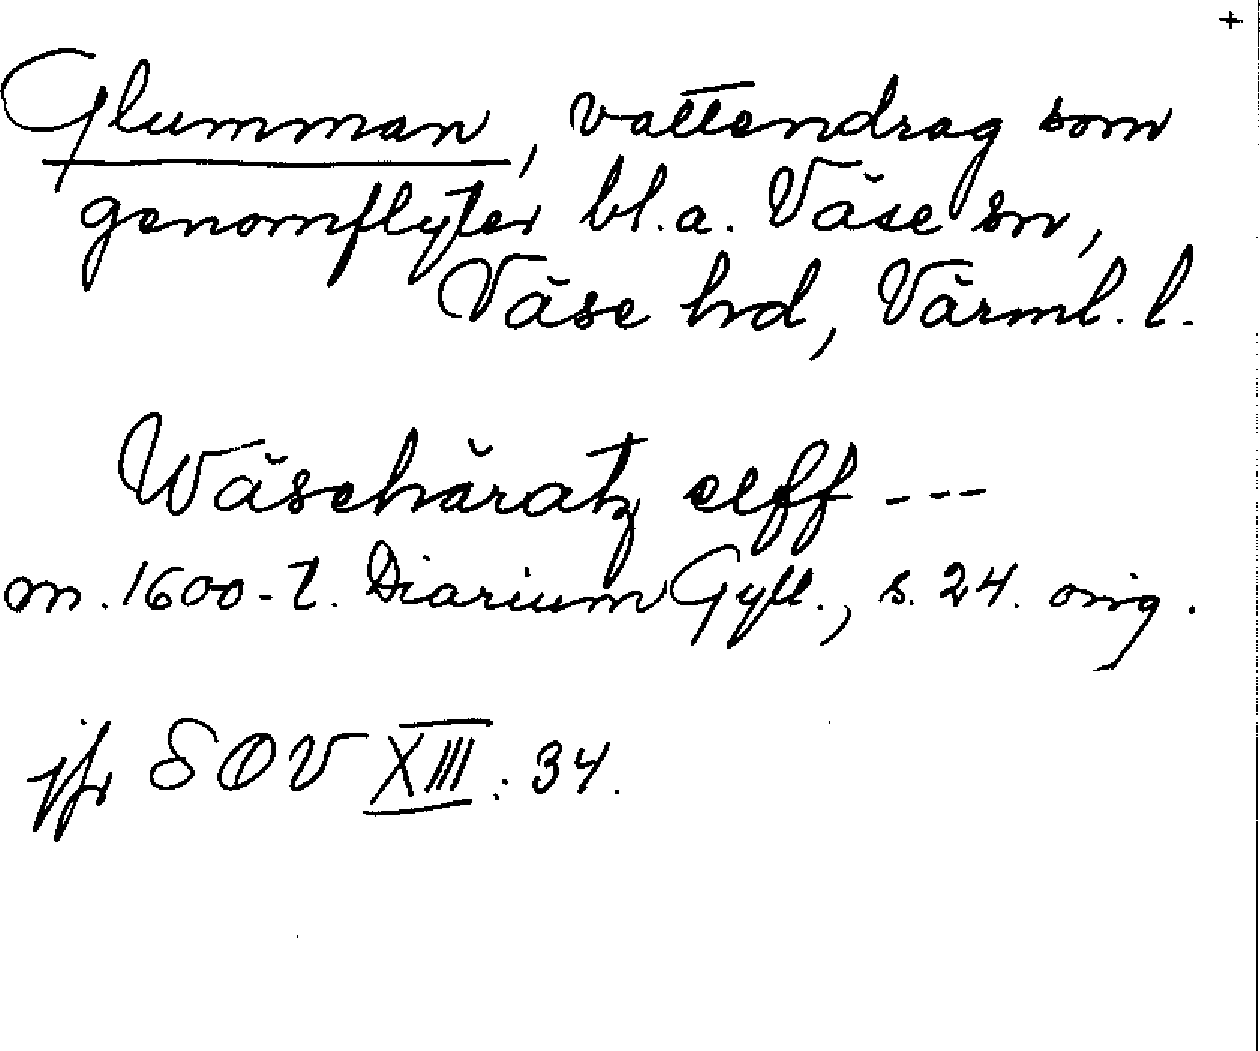 +
Glumman, vattendrag som
genomflyter bl.a. Väse sn,
Väse hd, Värml. l.
Wäsehäratz elff ---
m. 1600-t. Diarium Gyll., s. 24. orig.
jfr SOV XIII: 34.